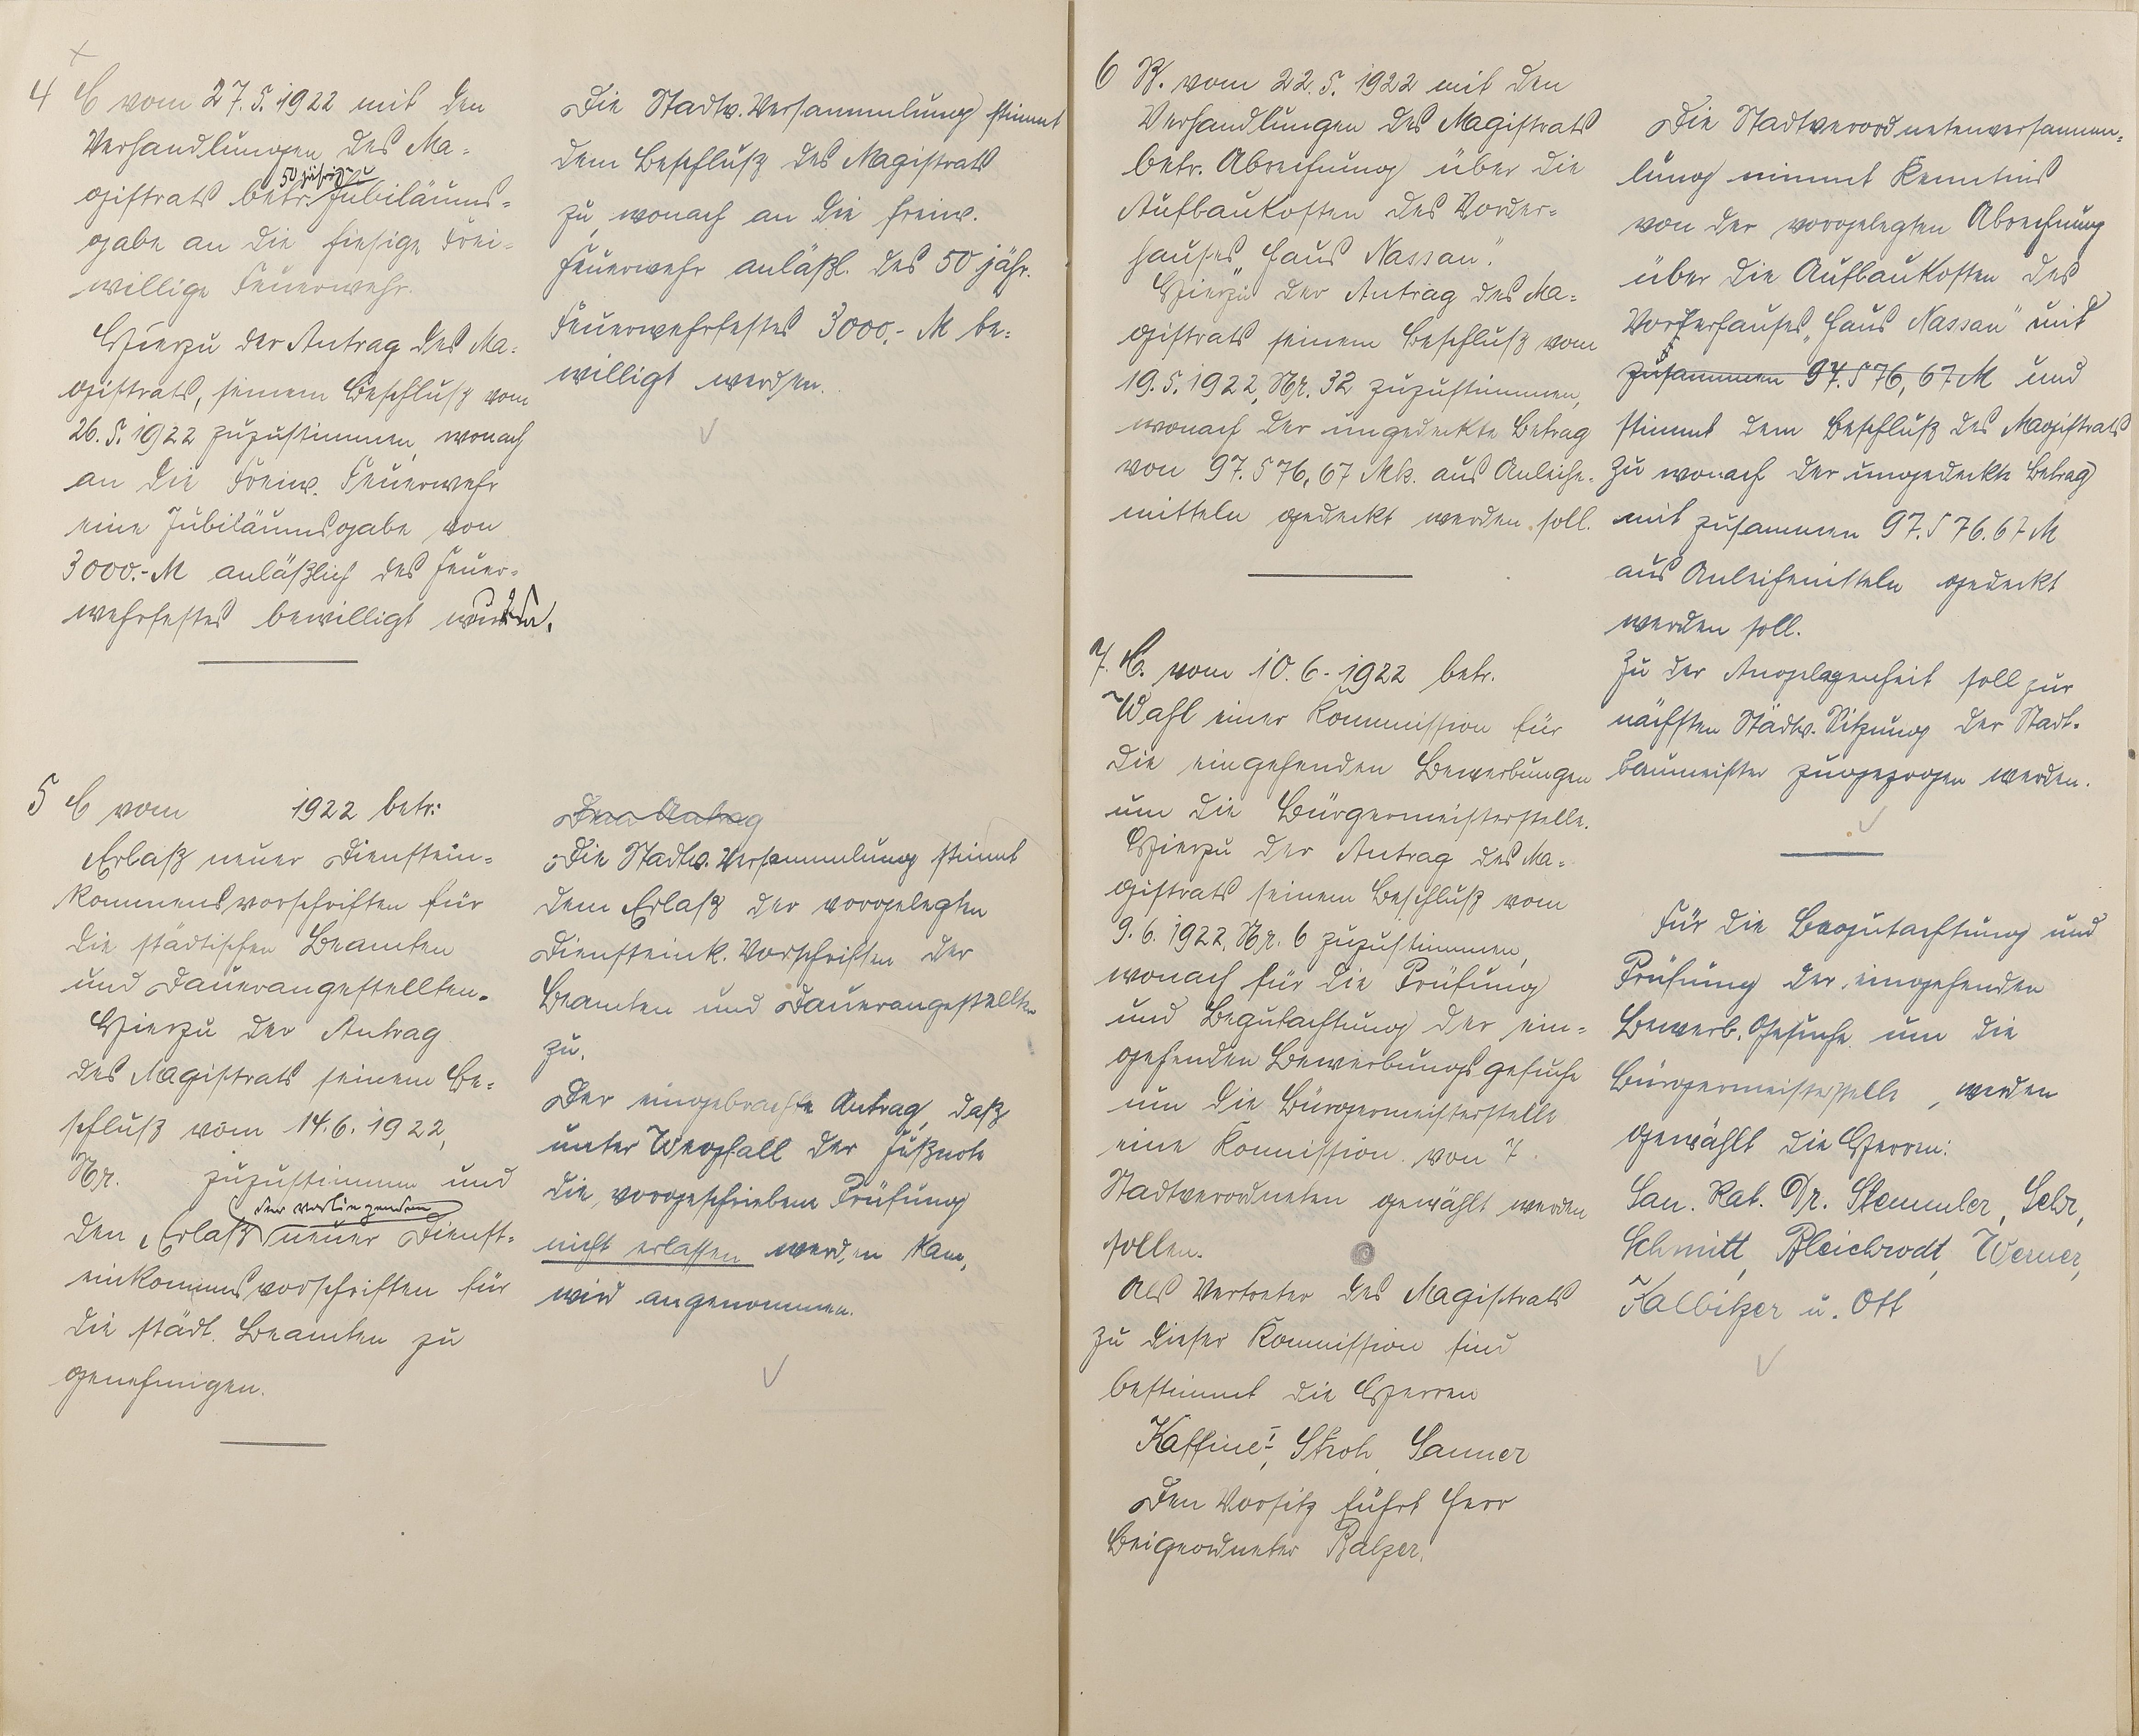 4 C vom 27.5.1922 mit den
Verhandlungen des Ma=
gistrats betr. 50 jährige Jubiläums=
gabe an die hiesige Frei=
willige Feuerwehr.
Hierzu der Antrag des Ma=
gistrats, seinem Beschluß vom
26.5.1922 zuzustimmen, wonach
an die Freiw. Feuerwehr
eine Jubiläumsgabe von
3000.- M anläßlich des Feuer=
wehrfestes bewilligt wurde.
Die Stadtv. Versammlung stimmt
dem Beschluß des Magistrats
zu, wonach an die freiw.
Feuerwehr anläßl. des 50 jähr.
Feuerwehrfestes 3000.- M be=
willigt werden.
5 C vom 1922 betr:
Erlaß neuer Dienstein=
kommensvorschriften für
die städtischen Beamten
und Dauerangestellten.
Hierzu der Antrag
des Magistrats seinem Be=
schluß vom 14.6.1922,
Nr. zuzustimmen und
den Erlaß der vorliegenden neuer Dienst=
einkommensvorschriften für
die städt. Beamten zu
genehmigen.
Dem Antrag
Die Stadtv. Versammlung stimmt
dem Erlaß der vorgelegten
Diensteink. Vorschriften der
Beamten und Dauerangestellten
zu.
Der eingebrachte Antrag, daß
unter Wegfall der Fußnote
die vorgeschriebene Prüfung
nicht erlassen werden kann,
wird angenommen.
6 B. vom 22.5.1922 mit den
Verhandlungen des Magistrats
betr. Abrechnung über die
Aufbaukosten des Vorder=
hauses „Haus Nassau".
Hierzu der Antrag des Ma=
gistrats seinem Beschluß vom
19.5.1922, Nr. 32 zuzustimmen,
wonach der ungedeckte Betrag
von 97.576,67 Mk. aus Anleihe=
mitteln gedeckt werden soll.
Die Stadtverordnetenversamm=
lung nimmt Kenntnis
von der vorgelegten Abrechnung
über die Aufbaukosten des
Vorderhauses „Haus Nassau" mit
zusammen 97.576,67 M und
stimmt dem Beschluß des Magistrats
zu wonach der ungedeckte Betrag
mit zusammen 97.576.67 M
aus Anleihemitteln gedeckt
werden soll.
Zu der Angelegenheit soll zur
nächsten Stadtv. Sitzung der Stadt=
baumeister zugezogen werden.
7. C. vom 10.6.1922 betr.
Wahl einer Kommission für
die eingehenden Bewerbungen
um die Bürgermeisterstelle.
Hierzu der Antrag des Ma=
gistrats seinem Beschluß vom
9.6.1922, Nr. 6 zuzustimmen,
wonach für die Prüfung
und Begutachtung der ein=
gehenden Bewerbungsgesuche
um die Bürgermeisterstelle
eine Komission von 7
Stadtverordneten gewählt werden
sollen.
Als Vertreter des Magistrats
zu dieser Kommission sind
bestimmt die Herren
Kaffine I, Stroh, Sanner
Den Vorsitz führt Herr
Beigeordneter Balzer.
Für die Begutachtung und
Prüfung der eingehenden
Bewerb. Gesuche um die
Bürgermeisterstelle, werden
gewählt die Herren:
San. Rat. Dr. Stemmler,
Schmitt, Bleichrodt, Werner,
Kalbitzer u. Ott